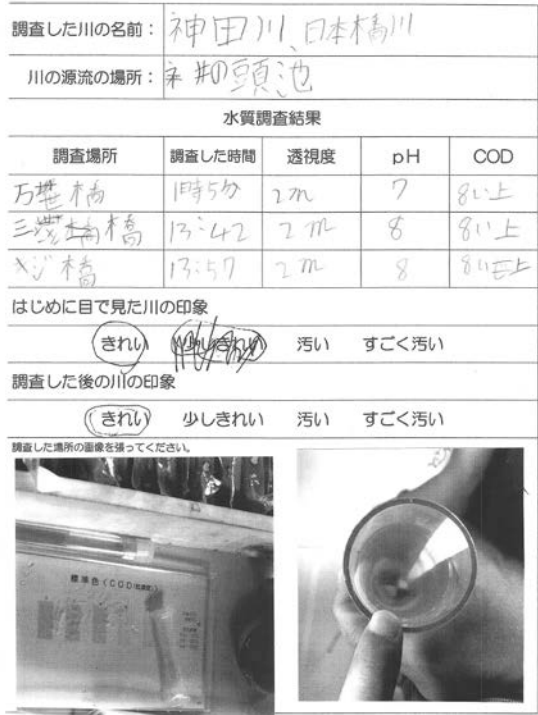 調査した川の名前： 神田川、日本橋川
川の源流の場所： 井の頭池
水質調査結果
調査場所 調査した時間 透視度 pH COD
万世橋 1時5分 2m 7 8以上
三崎橋 13:42 2m 8 8以上
橋 13:57 2m 8 8以上
はじめに目で見た川の印象
きれい 少しきれい 汚い すごく汚い
調査した後の川の印象
きれい 少しきれい 汚い すごく汚い
調査した場所の画像を張ってください。
標準色(COD(低濃度))